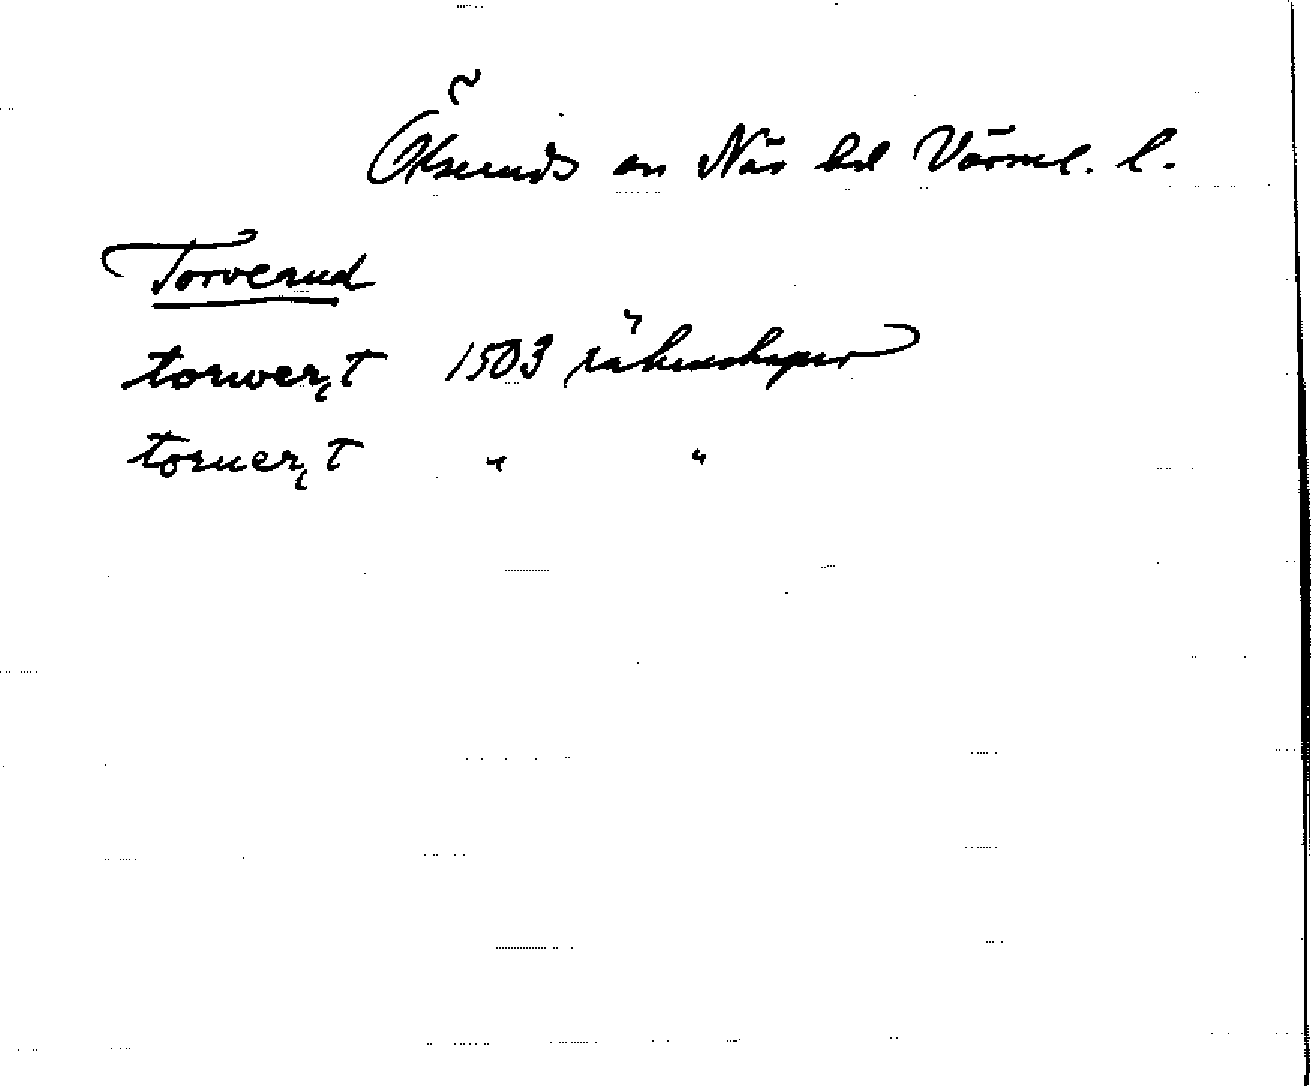 Ölseruds sn Näs hd Värml. l.
Torverud
torwer,t 1503 räkenskaper
toruer,t " "